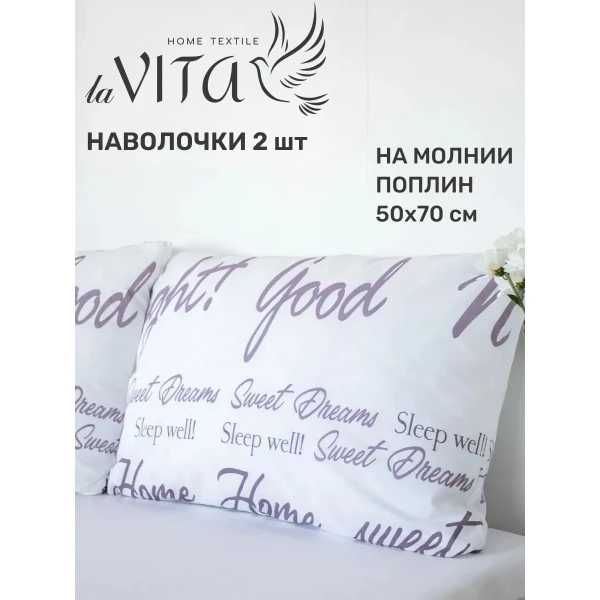 HOME TEXTILE
la VITA
НАВОЛОЧКИ 2 шт
НА МОЛНИИ
ПОПЛИН
50х70 см
ood
ght! Good N
Sweet Dreams Sweet Dreams
Sleep well! Sleep well! Sleep well!
Dreams
Sweet
Sweet Dreams
Home Home sweet